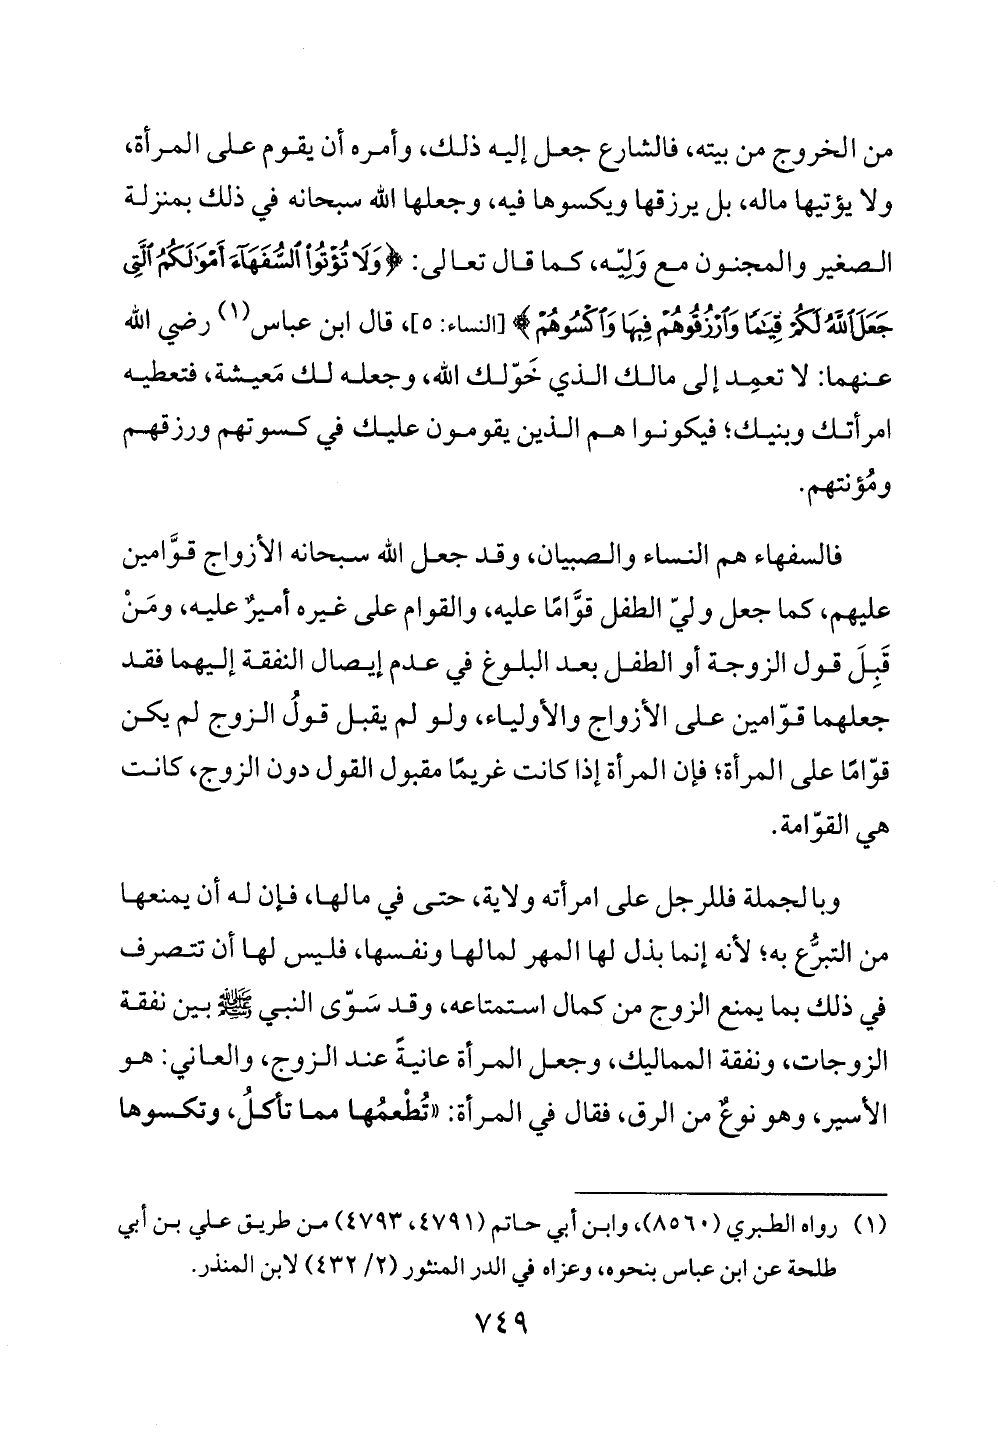 من الخروج من بيته، فالشارع جعل إليه ذلك، وأمره أن يقوم على المرأة،
ولا يؤتيها ماله، بل يرزقها ويكسوها فيه، وجعلها الله سبحانه في ذلك بمنزلة
الصغير والمجنون مع وَلِيّه، كما قال تعالى: ﴿وَلَا تُؤْتُوا۟ ٱلسُّفَهَآءَ أَمْوَٰلَكُمُ ٱلَّتِى
جَعَلَ ٱللَّهُ لَكُمْ قِيَٰمًا وَٱرْزُقُوهُمْ فِيهَا وَٱكْسُوهُمْ﴾ [النساء: ٥]، قال ابن عباس(١) رضي الله
عنهما: لا تعمِد إلى مالك الذي خَوّلك الله، وجعله لك مَعيشة، فتعطيه
امرأتك وبنيك؛ فيكونوا هم الذين يقومون عليك في كسوتهم ورزقهم
ومُؤنتهم.
فالسفهاء هم النساء والصبيان، وقد جعل الله سبحانه الأزواج قوَّامين
عليهم، كما جعل وليّ الطفل قوَّامًا عليه، والقوام على غيره أميرٌ عليه، ومَنْ
قَبِلَ قول الزوجة أو الطفل بعد البلوغ في عدم إيصال النفقة إليهما فقد
جعلهما قوّامين على الأزواج والأولياء، ولو لم يقبل قولُ الزوج لم يكن
قوّامًا على المرأة؛ فإن المرأة إذا كانت غريمًا مقبول القول دون الزوج، كانت
هي القوّامة.
وبالجملة فللرجل على امرأته ولاية، حتى في مالها، فإن له أن يمنعها
من التبرُّع به؛ لأنه إنما بذل لها المهر لمالها ونفسها، فليس لها أن تتصرف
في ذلك بما يمنع الزوج من كمال استمتاعه، وقد سَوّى النبي ﷺ بين نفقة
الزوجات، ونفقة المماليك، وجعل المرأة عانيةً عند الزوج، والعاني: هو
الأسير، وهو نوعٌ من الرق، فقال في المرأة: «تُطْعمُها مما تأكلُ، وتكسوها
(١) رواه الطبري (٨٥٦٠)، وابن أبي حاتم (٤٧٩١، ٤٧٩٣) من طريق علي بن أبي
طلحة عن ابن عباس بنحوه، وعزاه في الدر المنثور (٢/ ٤٣٢) لابن المنذر.
٧٤٩